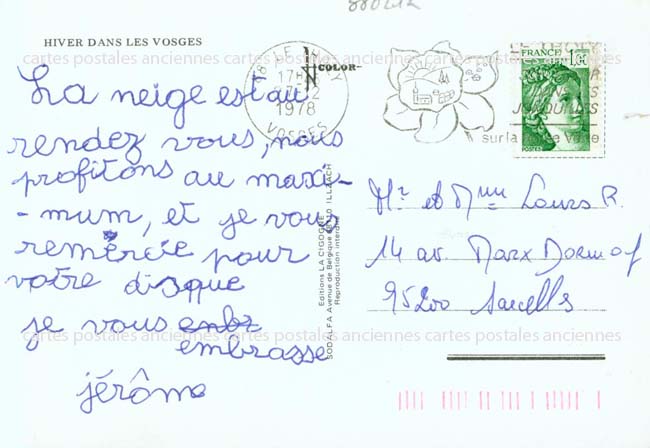 880212
HIVER DANS LES VOSGES
La neige est au
rendez vous, nous
profitons au maxi-
-mum, et je vous
remercie pour
votre disque
je vous enbr
embrasse
jérôme
COLOR
Editions LA CIGOGNE
SODALFA Avenue de Belgique 68110 ILLZACH
Reproduction interdite
88 LE
17H
1978
VOSGES
sur la
FRANCE
POSTES
Mr et Mme Louis R.
14 av. Marx Dormoy
95200 Sarcelles
cartes postales anciennes cartes postales anciennes cartes postales anciennes cartes postales anciennes
cartes postales anciennes cartes postales anciennes cartes postales anciennes cartes postales anciennes